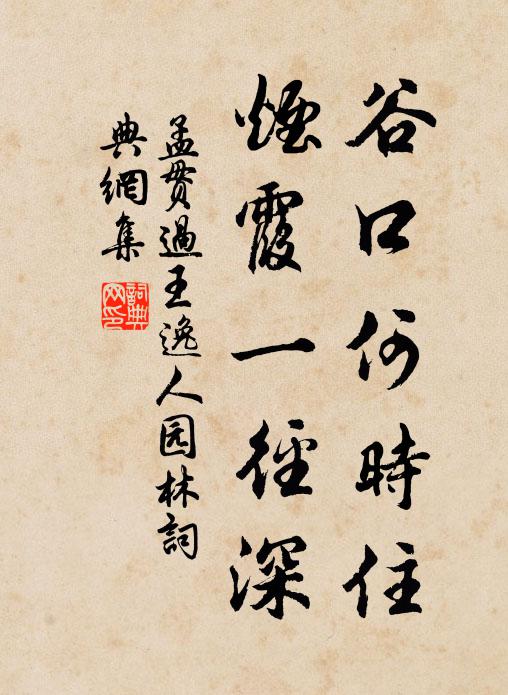 谷口何時住
煙霞一徑深
孟貫過王逸人园林詞
典網集
詞典
网印